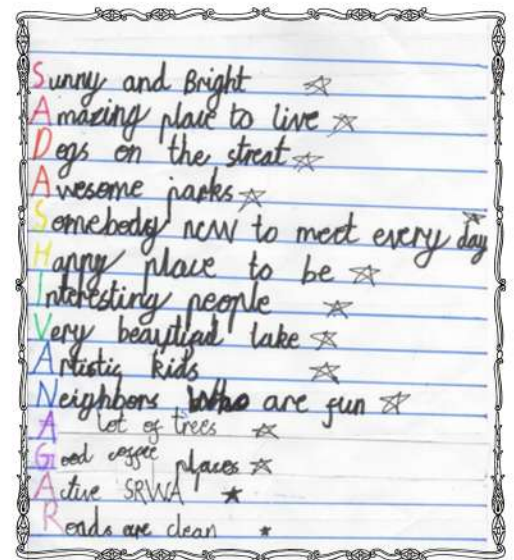 Sunny and Bright
Amazing place to live
Dogs on the streat
Awesome parks
Somebody new to meet every day
Happy place to be
Interesting people
Very beautiful lake
Artistic kids
Neighbors Who are fun
A lot of trees
Good coffee places
Active SRWA
Roads are clean